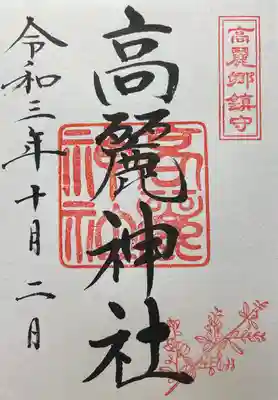 高麗郷鎮守
高麗神社
令和三年十月二日
高麗神社